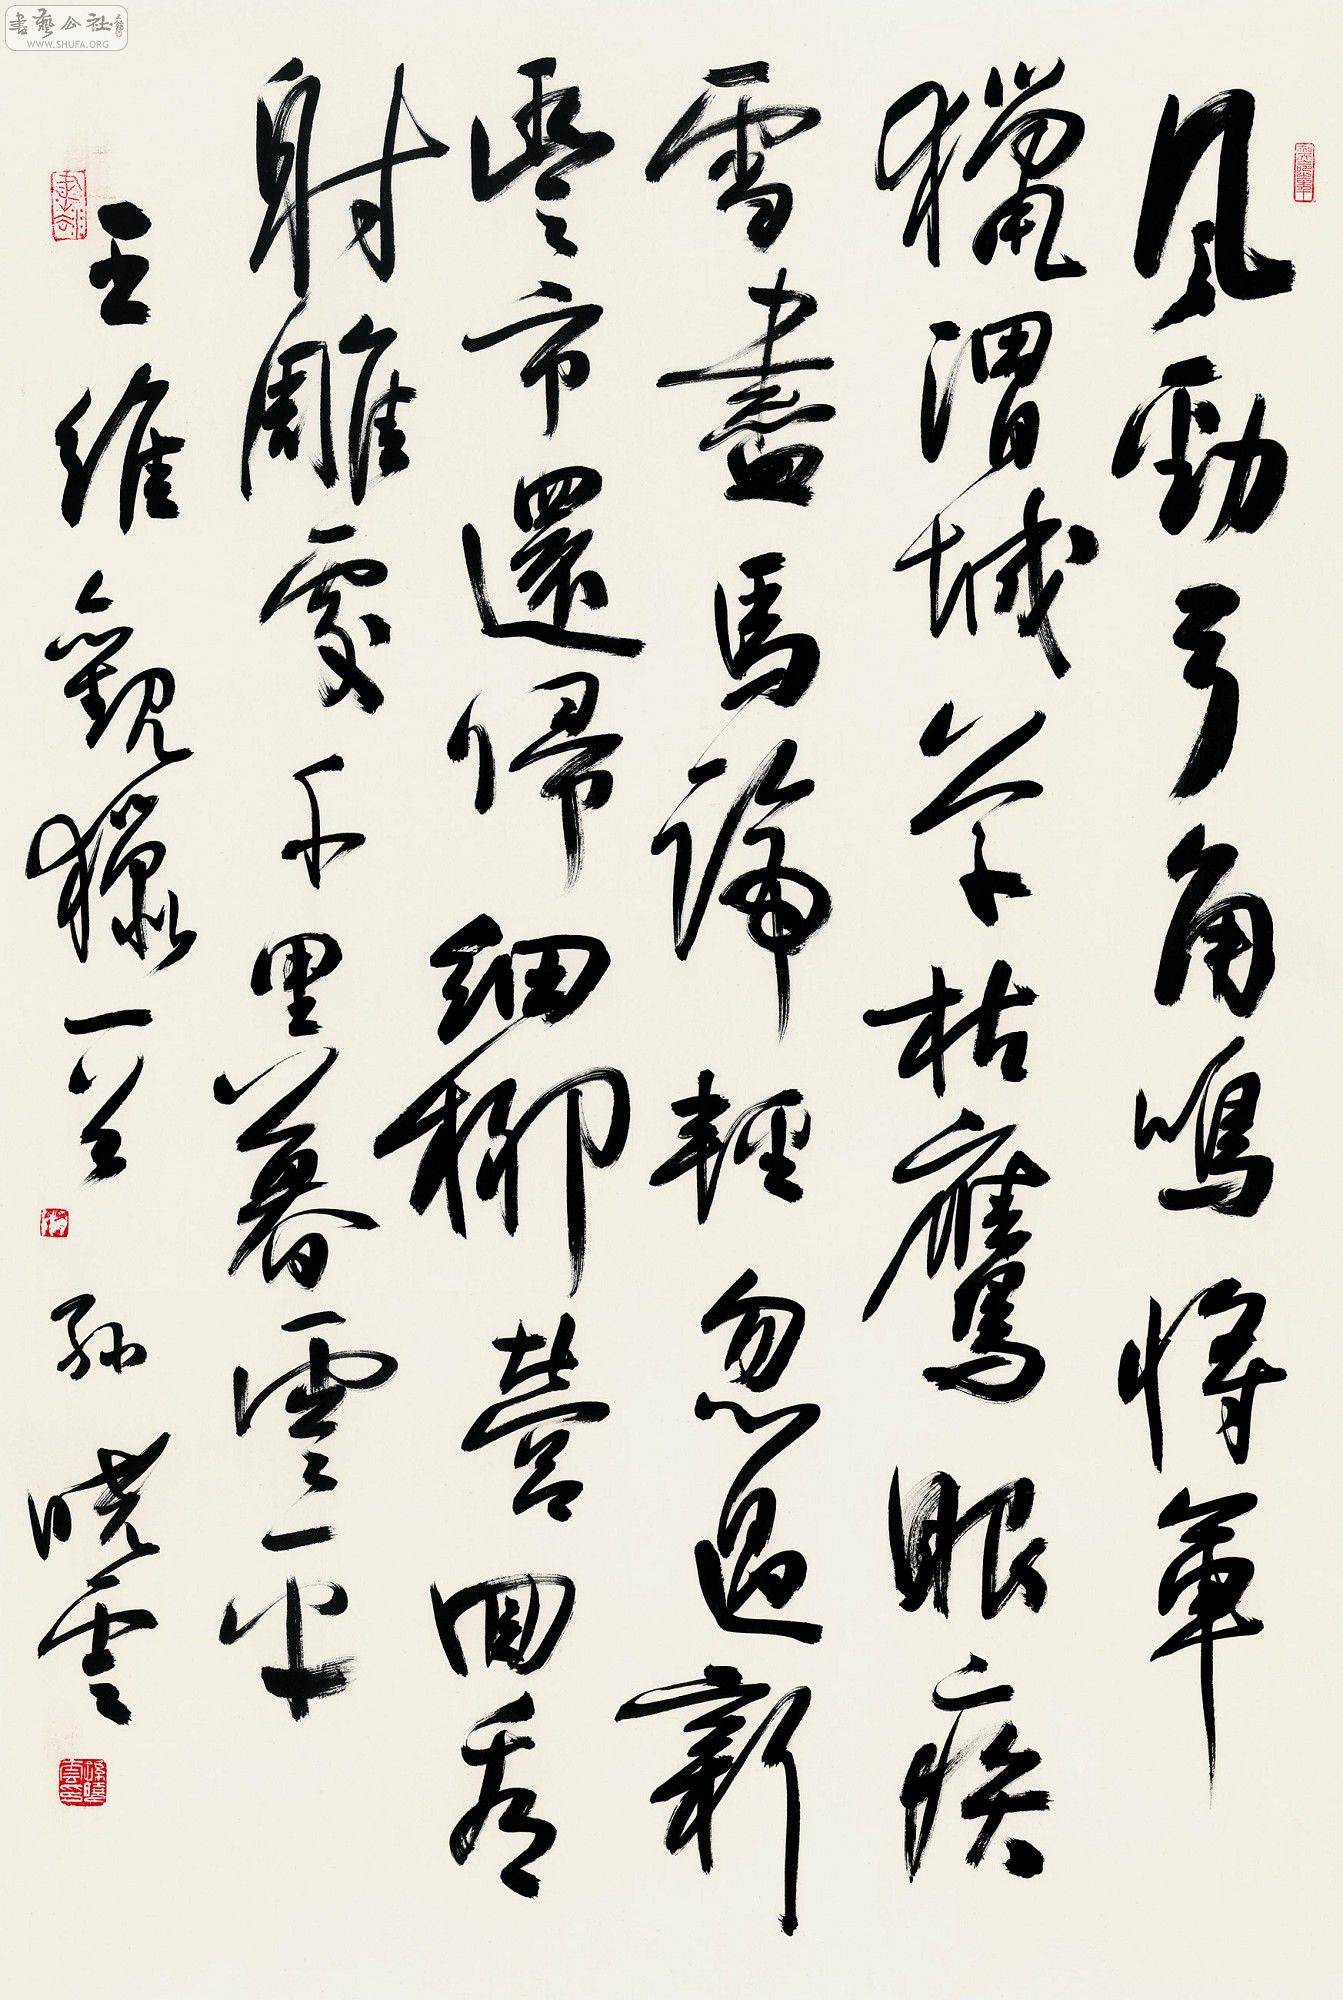 書藝公社
WWW.SHUFA.ORG
風勁弓角鳴將軍
獵渭城草枯鷹眼疾
雪盡馬蹄輕忽過新
豐市還歸細柳營回看
射雕處千里暮雲平
王維觀獵一首 孫曉雲
孫曉雲印